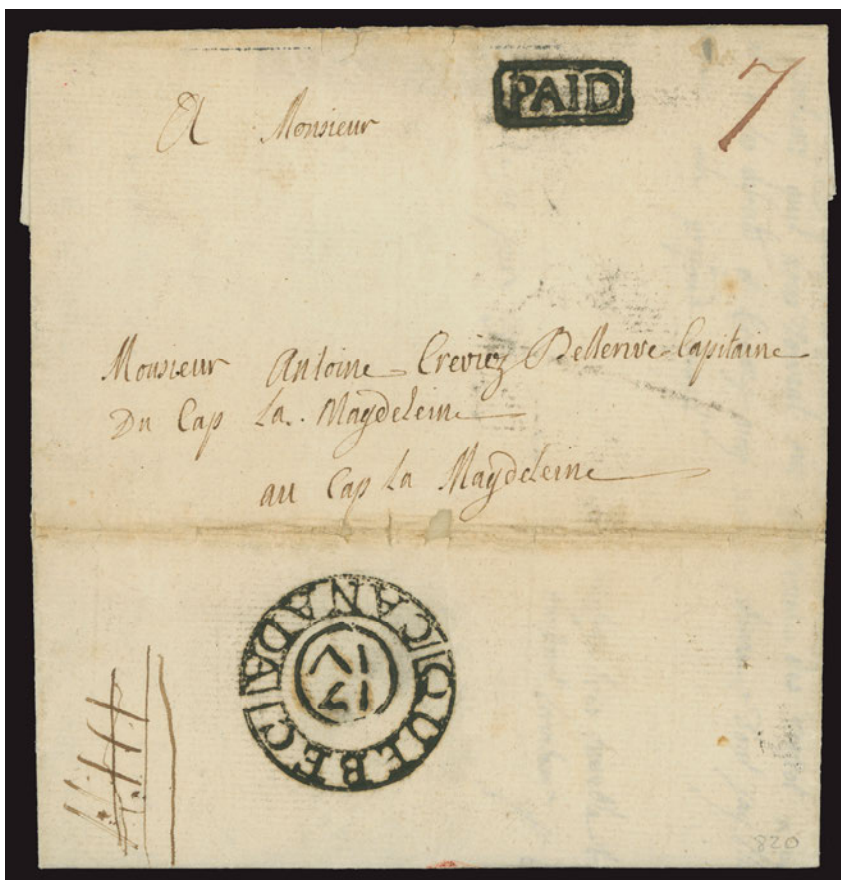 PAID
7
A Monsieur
Monsieur Antoine Crevier Bellerive Capitaine
Du Cap La Magdeleine
au Cap La Magdeleine
QUEBEC
CANADA
820